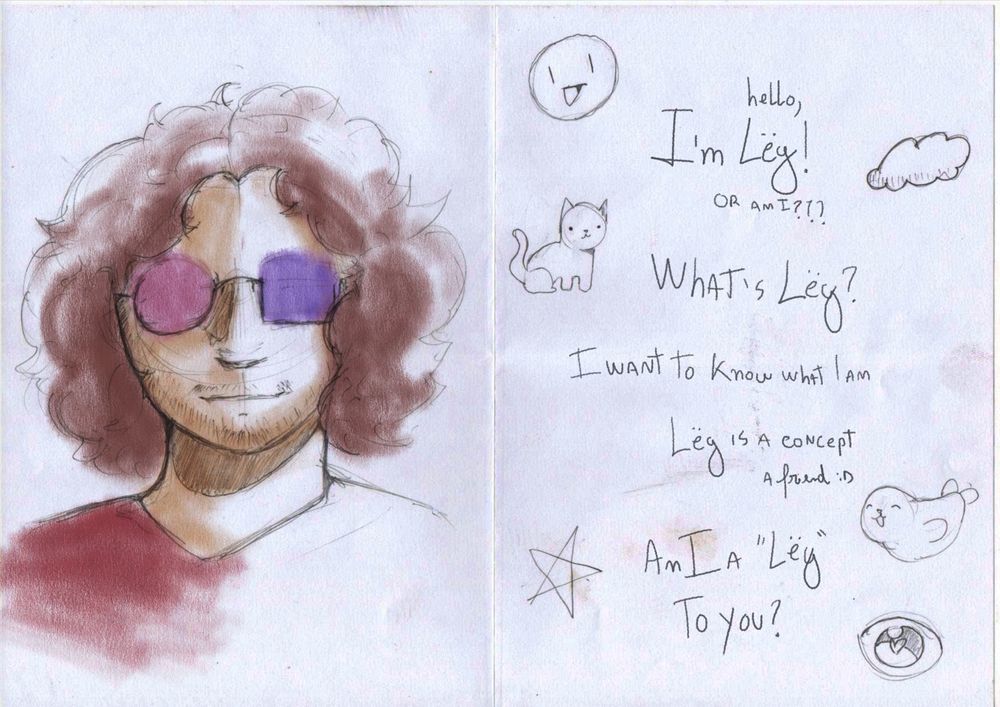 hello,
I'm Lëg!
OR AM I???
WHAT'S Lëg?
I WANT TO KNOW WHAT I AM
Lëg IS A CONCEPT
A friend :D
AM I A "Lëg"
TO YOU?